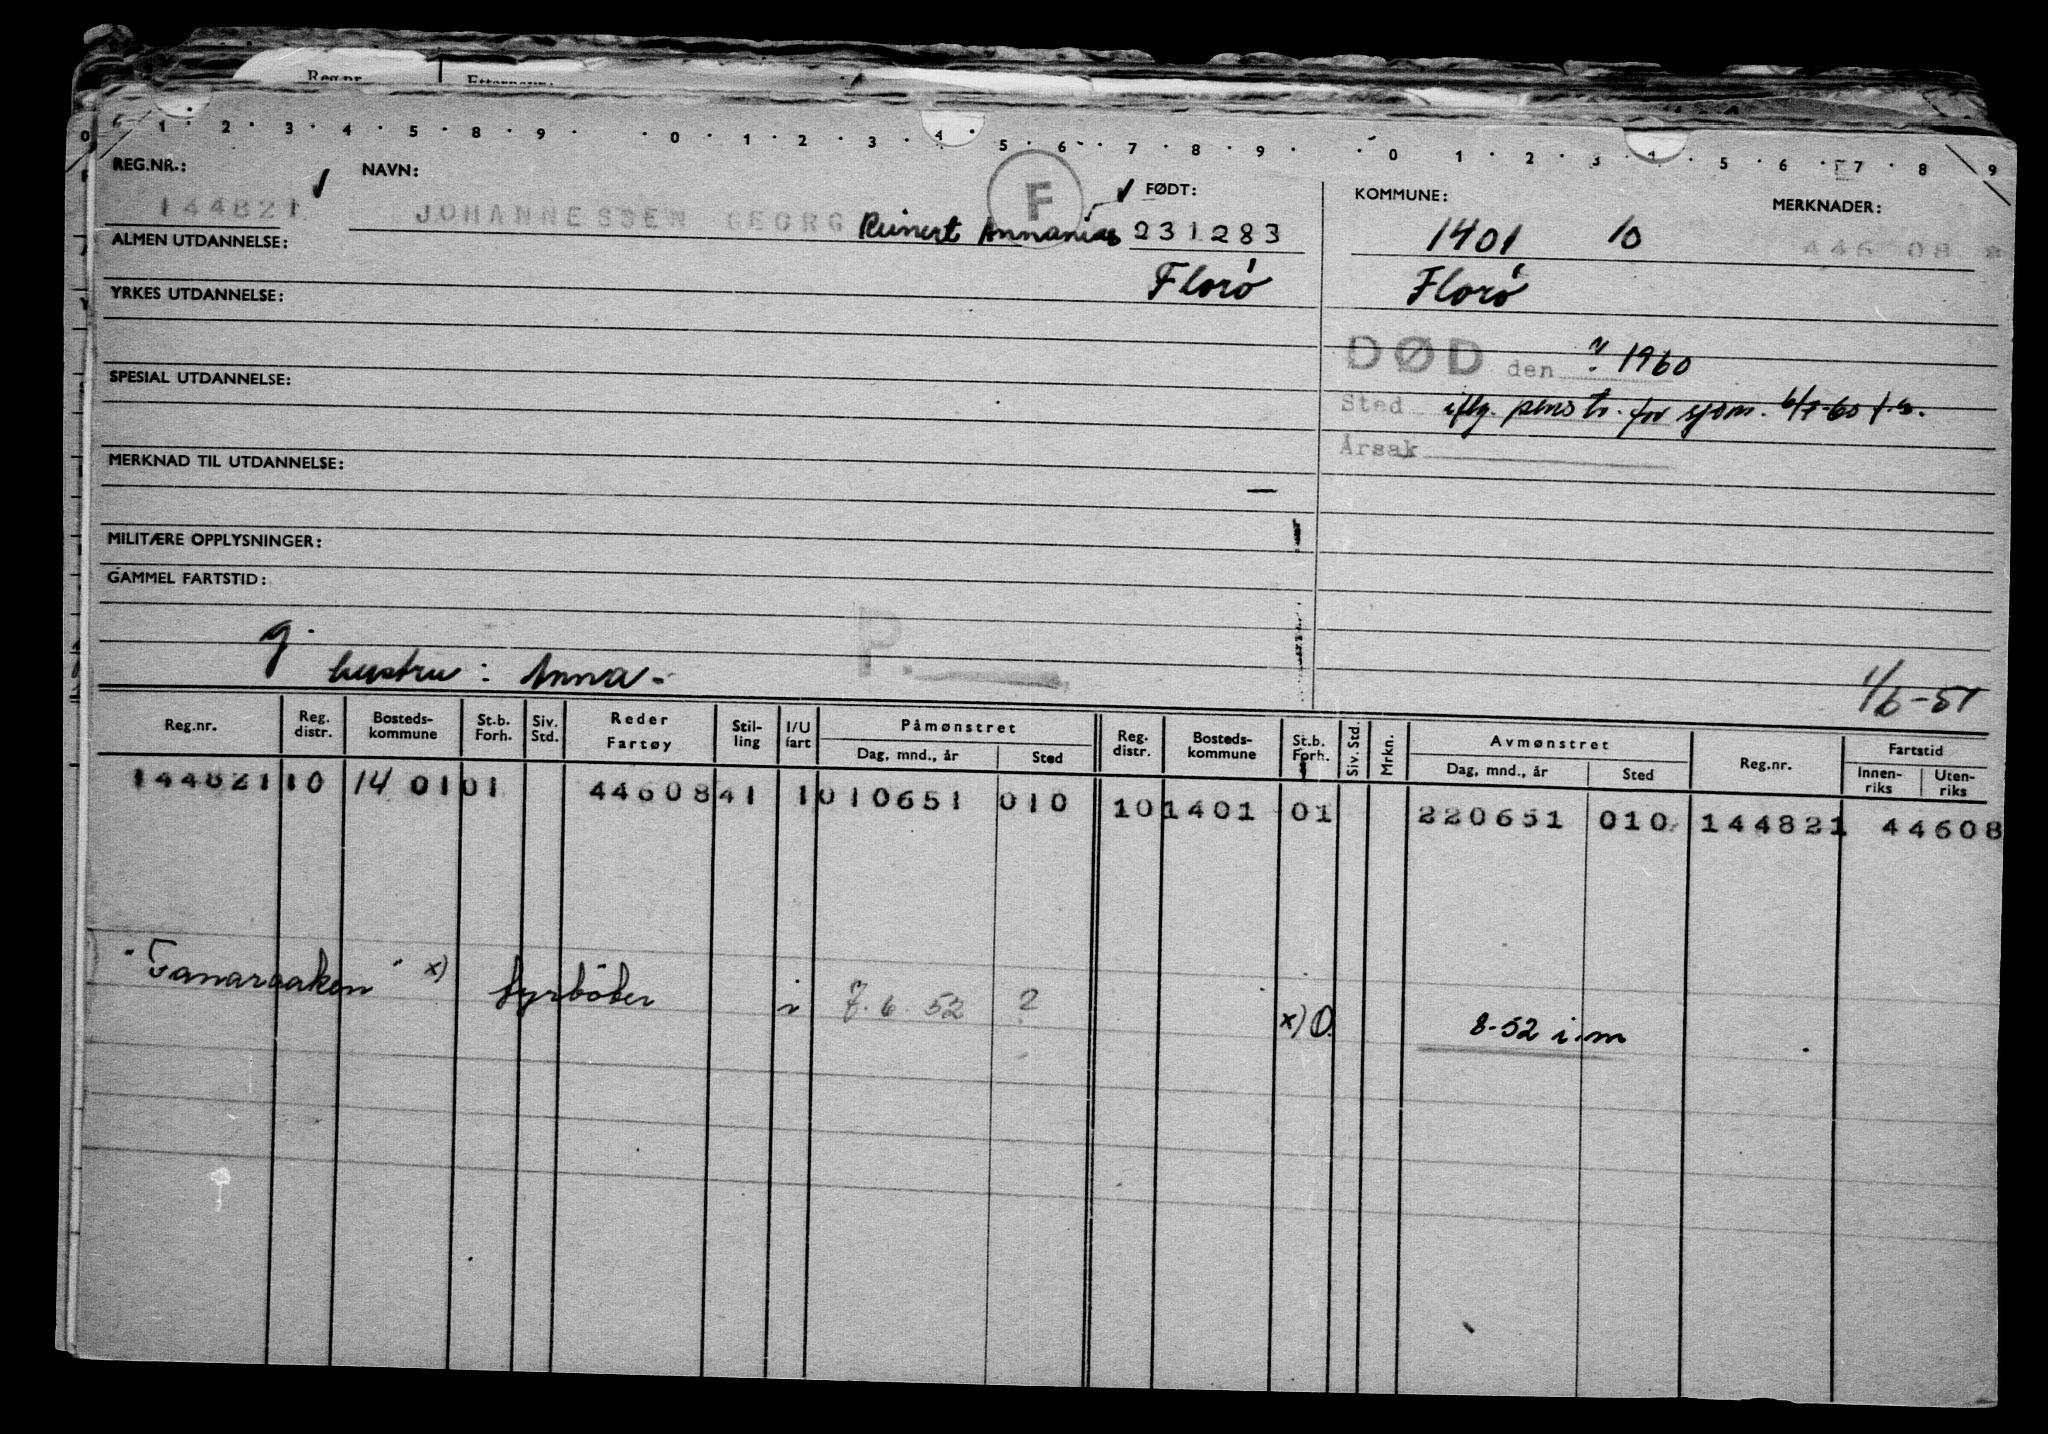 Reg.nr.
0 1 2 3 4 5 8 9 0 1 2 3 4 5 6 7 8 9 0 1 2 3 4 5 6 7 8 9
REG.NR.: NAVN: F FØDT: KOMMUNE: MERKNADER:
144821 JOHANNESSEN GEORG Reinert Annanias 231283 1401 10 446 08
ALMEN UTDANNELSE: Florø Florø
YRKES UTDANNELSE:
DØD den ? 1960
SPESIAL UTDANNELSE:
Sted iflg. penstr. for sjøm. 6/7-60
Årsak
MERKNAD TIL UTDANNELSE:
MILITÆRE OPPLYSNINGER:
GAMMEL FARTSTID:
g. P.
hustru : Anna - 1/6-51
Reg.nr. Reg. distr. Bosteds-kommune St.b. Forh. Siv. Std. Reder Fartøy Stil-ling I/U fart Påmønstret Dag, mnd., år Sted Reg. distr. Bosteds-kommune St.b. Forh. Siv. Std. Mrkn. Avmønstret Dag, mnd., år Sted Reg.nr. Fartstid Innen-riks Uten-riks
144821 10 14 01 01 44608 41 1 010651 010 10 1401 01 220651 010 144821 44608
"Fanaraaken" x) fyrbøter i 7.6.52 ? x) O. 8-52 i.m